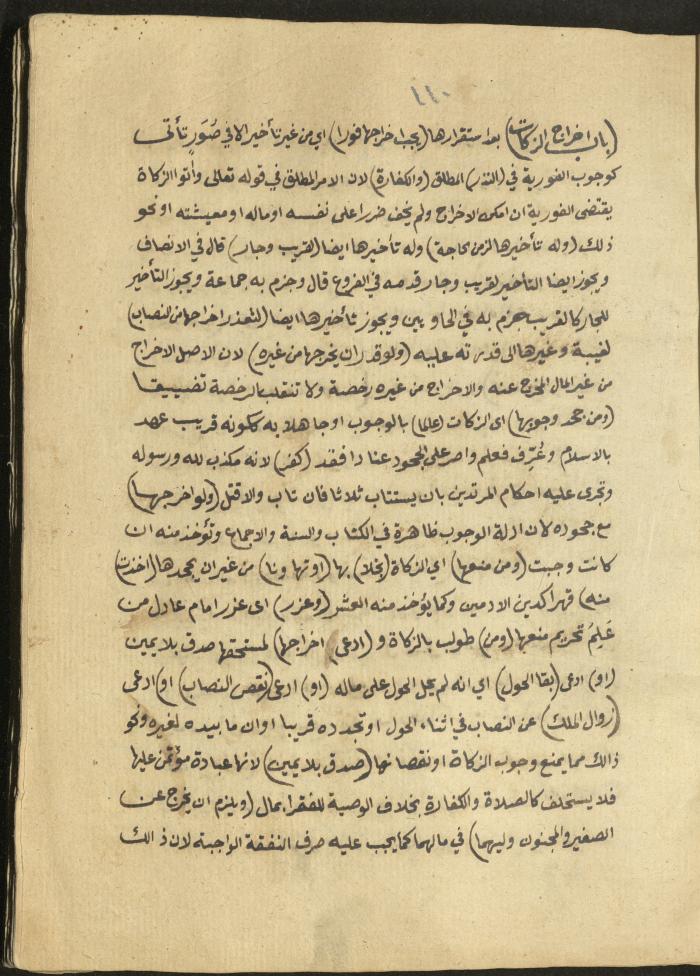 ١٤٠
(باب اخراج الزكاة) بعد استقرارها (يجب اخراجها فورا) اي من غير تأخير الا في صُوَرٍ تأتى
كوجوب الفورية في (النذر) المطلق (والكفارة) لان الامر المطلق في قوله تعالى وأتوا الزكاة
يقتضى الفورية ان امكن الاخراج ولم يخف ضررا على نفسه او ماله او معيشته او نحو
ذلك (وله تأخيرها لزمن حاجة) وله تأخيرها ايضا (لقريب وجار) قال في الانصاف
ويجوز ايضا التأخير لقريب وجار قدمه في الفروع قال وجزم به جماعة ويجوز التأخير
للجار كالقريب جزم به في الحاويين ويجوز تأخيرها ايضا (لتعذر اخراجها من النصاب)
لغيبة وغيرها الى قدرته عليه (ولو قدر ان يخرجها من غيره) لان الاصل الاخراج
من غير المال المخرج عنه والاخراج من غيره رخصة ولا تنقلب الرخصة تضييقا
(ومن جحد وجوبها) اى الزكات (عالما) بالوجوب او جاهلا به ككونه قريب عهد
بالاسلام وعُرِّف فعلم واصر على الجحود عنادا فقد (كفر) لانه مكذب لله ورسوله
وتجرى عليه احكام المرتدين بان يستتاب ثلاثا فان تاب والا قتل (ولو اخرجها)
مع جحوده لان ادلة الوجوب ظاهرة في الكتاب والسنة والاجماع وتؤخذ منه ان
كانت وجبت (ومن منعها) اي الزكاة (بخلا) بها (او تهاونا) من غير ان يجحدها (اخذت
منه) قهرا كدين الادمين وكما يؤخذ منه العشر (وعزر) اى عزر امام عادل من
عَلِمُ تحريم منعها (ومن) طولب بالزكاة و (ادعى اخراجها) لمستحقها صدق بلا يمين
(او) ادعى (بقا الحول) اي انه لم يحل الحول على ماله (او) ادعى (نقص النصاب) او) ادعى
(زوال الملك) عن النصاب في اثناء الحول او تجدده قريبا او ان ما بيده لغيره ونحو
ذالك مما يمنع وجوب الزكاة او نقصانها (صدق بلا يمين) لانها عبادة مؤتمن عليها
فلا يستحلف كالصلاة والكفارة بخلاف الوصية للفقراء بمال (ويلزم ان يخرج عن
الصغير والمجنون وليهما) في مالهما كما يجب عليه صرف النفقة الواجبة لان ذالك